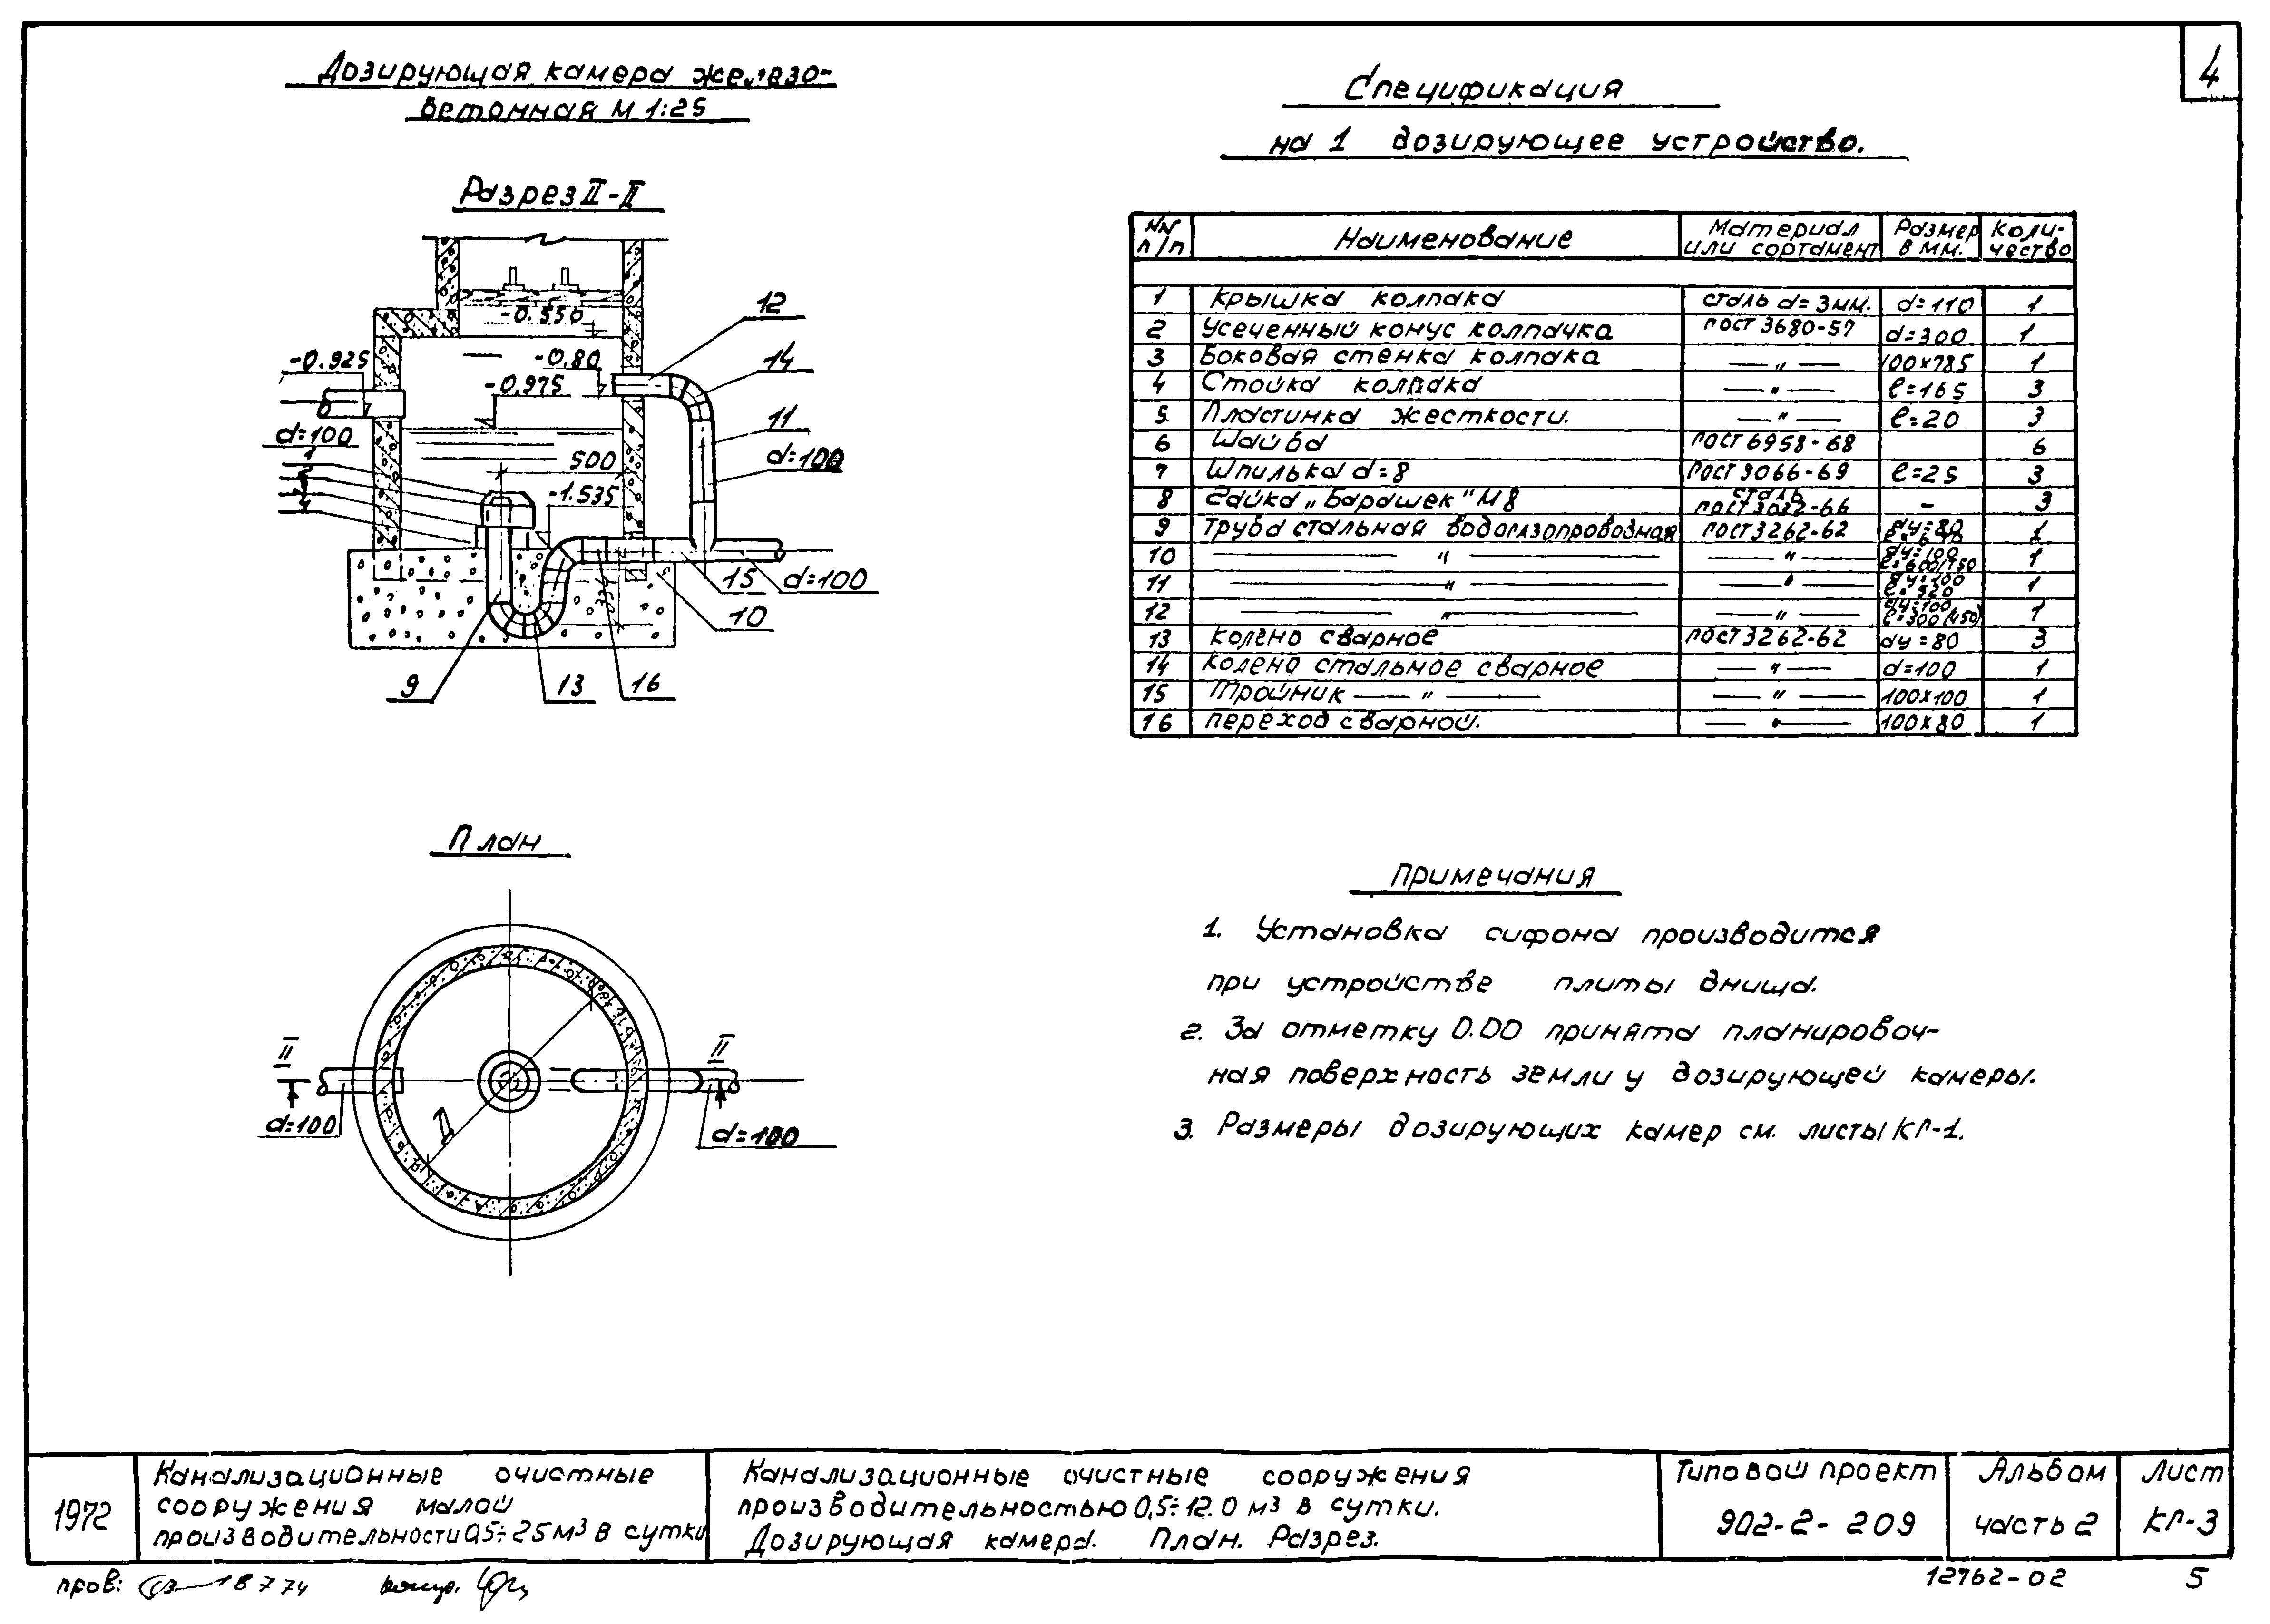 4
Дозирующая камера железо-
бетонная М 1:25
Разрез II-II
-0.550
-0.925
-0.80
-0.975
d=100
500
-1.535
12
14
11
d=100
1
15
d=100
10
9
13
16
План
II
II
d=100
Д
d=100
Спецификация
на 1 дозирующее устройство.
NN п/п Наименование Материал или сортамент Размер в мм. Коли-чество
1 Крышка колпака сталь d=3мм. d=110 1
2 Усеченный конус колпачка гост 3680-57 d=300 1
3 Боковая стенка колпака —„— 100х785 1
4 Стойка колпака —„— ℓ=165 3
5 Пластинка жесткости. —„— ℓ=20 3
6 Шайба гост 6958-68 6
7 Шпилька d=8 гост 9066-69 ℓ=25 3
8 Гайка „Барашек" М8 сталь гост 3032-66 - 3
9 Труба стальная водогазопроводная гост 3262-62 dу=80 1
10 —„— —„— dу=100 ℓ=600/750 1
11 —„— —„— dу=100 ℓ=520 1
12 —„— —„— dу=100 ℓ=300(450) 1
13 Колено сварное гост 3262-62 dу=80 3
14 Колено стальное сварное —„— d=100 1
15 Тройник —„— —„— 100х100 1
16 переход сварной. —„— 100х80 1
Примечания
1. Установка сифона производится
при устройстве плиты днища.
2. За отметку 0.00 принята планировоч-
ная поверхность земли у дозирующей камеры.
3. Размеры дозирующих камер см. листы КГ-1.
1972
Канализационные очистные
сооружения малой
производительности 0,5÷25м³ в сутки
Канализационные очистные сооружения
производительностью 0,5÷12.0 м³ в сутки.
Дозирующая камера. План. Разрез.
Типовой проект
902-2-209
Альбом
часть 2
Лист
КГ-3
пров: 18 7 74
12762-02 5